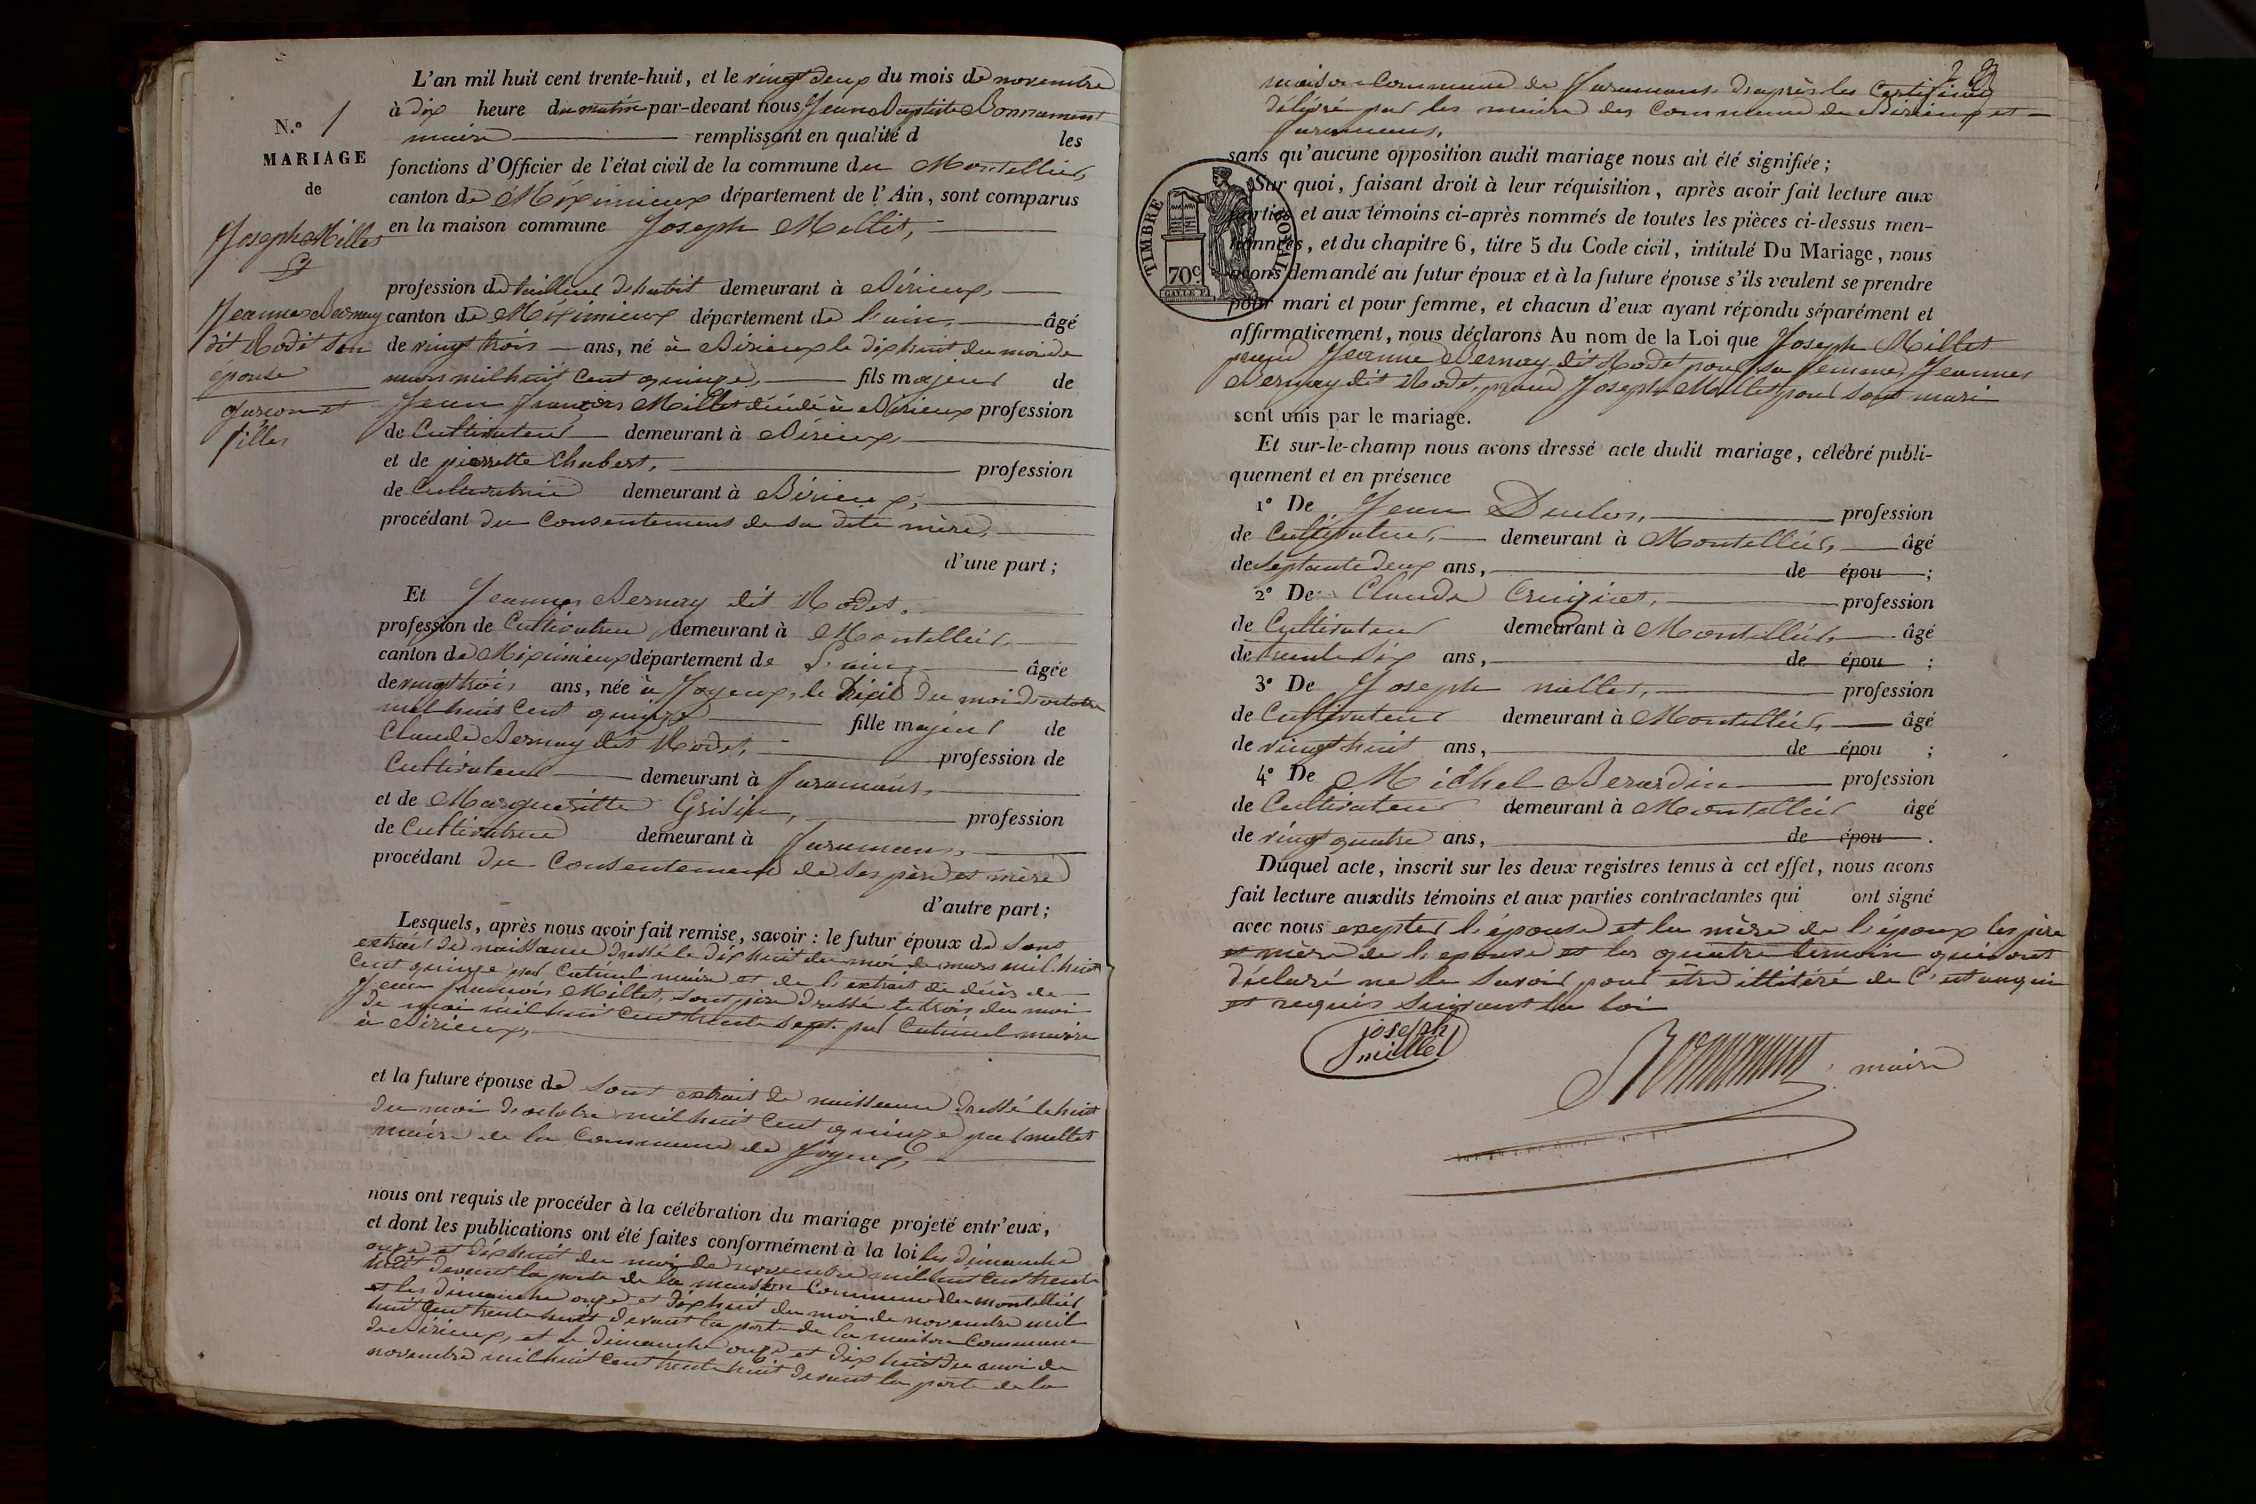 L'an mil huit cent trente-huit, et le vingt deux du mois de novembre
à dix heure du matin par-devant nous Jean Baptiste Bonnament
maire remplissant en qualité d les
fonctions d'Officier de l'état civil de la commune du Montellier
canton de Méximieux département de l'Ain, sont comparus
en la maison commune Joseph Millet,
N.° 1
MARIAGE
de
Joseph Millet
et
Jeanne Bernay
dit Rodet son
épouse
garçon et
filles
profession de tailleur d'habit demeurant à Birieux,
canton de Méximieux département de l'ain, âgé
de vingt trois ans, né à Birieux le dix huit du moi de
mars mil huit cent quinze, fils majeur de
Jean françois Millet décédé à Birieux profession
de Cultivateur demeurant à Birieux,
et de pierrette Chabert, profession
de Cultivatrice demeurant à Birieux,
procédant du Consentement de sa dite mère,
d'une part;
Et Jeanne Bernay dit Rodet,
profession de Cultivatrice demeurant à Montellier,
canton de Méximieux département de L'ain, âgée
de vingt trois ans, née à Joyeux, le du moi d'octobre
mil huit Cent quinze fille majeur de
Claude Bernay dit Rodet, profession de
Cultivateur demeurant à faramans,
et de Margueritte profession
de Cultivatrice demeurant à faramans,
procédant du Consentement de ses père et mère
d'autre part;
Lesquels, après nous avoir fait remise, savoir: le futur époux de sont
extrait de naissance dressé le dix huit du moi de mars mil huit
Cent quinze par maire et de l'extrait de décès de
Jean françois Millet, sont père dressé le trois du moi
de mai mil huit cent trente sept par maire
à Birieux,
et la future épouse de sont extrait de naissance dressé le huit
du moi d'octobre mil huit Cent quinze par millet
maire de la Commune de Joyeux,
nous ont requis de procéder à la célébration du mariage projeté entr'eux,
et dont les publications ont été faites conformément à la loi les dimanche
onze et dix huit du moi de novembre mil huit cent trente
huit devant la porte de la maison Commune du montellier
et les dimanche onze et dix huit du moi de novembre mil
huit Cent trente huit devant la porte de la maison Commune
de Birieux, et le dimanche onze et dix huit du moi de
novembre mil huit Cent trente huit devant la porte de la
maison Commune de faramans d'après les Certificat
délivré par les maire des Commune de Birieux et
faramans,
sans qu'aucune opposition audit mariage nous ait été signifiée;
TIMBRE ROYAL
70c
Sur quoi, faisant droit à leur réquisition, après avoir fait lecture aux
parties et aux témoins ci-après nommés de toutes les pièces ci-dessus men-
tionnées, et du chapitre 6, titre 5 du Code civil, intitulé Du Mariage, nous
avons demandé au futur époux et à la future épouse s'ils veulent se prendre
pour mari et pour femme, et chacun d'eux ayant répondu séparément et
affirmativement, nous déclarons Au nom de la Loi que Joseph Millet
prend Jeanne Bernay dit Rodet pour sa femme, Jeanne
Bernay dit Rodet, prend Joseph Millet pour sont mari
sont unis par le mariage.
Et sur-le-champ nous avons dressé acte dudit mariage, célébré publi-
quement et en présence
1° De Jean Duclos, profession
de Cultivateur, demeurant à Montellier, âgé
de septante deux ans, de épou ;
2° De Claude profession
de Cultivateur demeurant à Montellier, âgé
de trente six ans, de épou ;
3° De Joseph millet, profession
de Cultivateur demeurant à Montellier, âgé
de vingt huit ans, de épou ;
4° De Michel Berardin profession
de Cultivateur demeurant à Montellier âgé
de vingt quatre ans, de épou .
Duquel acte, inscrit sur les deux registres tenus à cet effet, nous avons
fait lecture auxdits témoins et aux parties contractantes qui ont signé
avec nous excepter l'épouse et la mère de l'époux les père
et mère de l'epouse et les quatre temoin qui ont
déclaré ne le savoir pour être illitéré de C'est enquis
et requis suivant la loi
joseph
millet
Bonnament maire